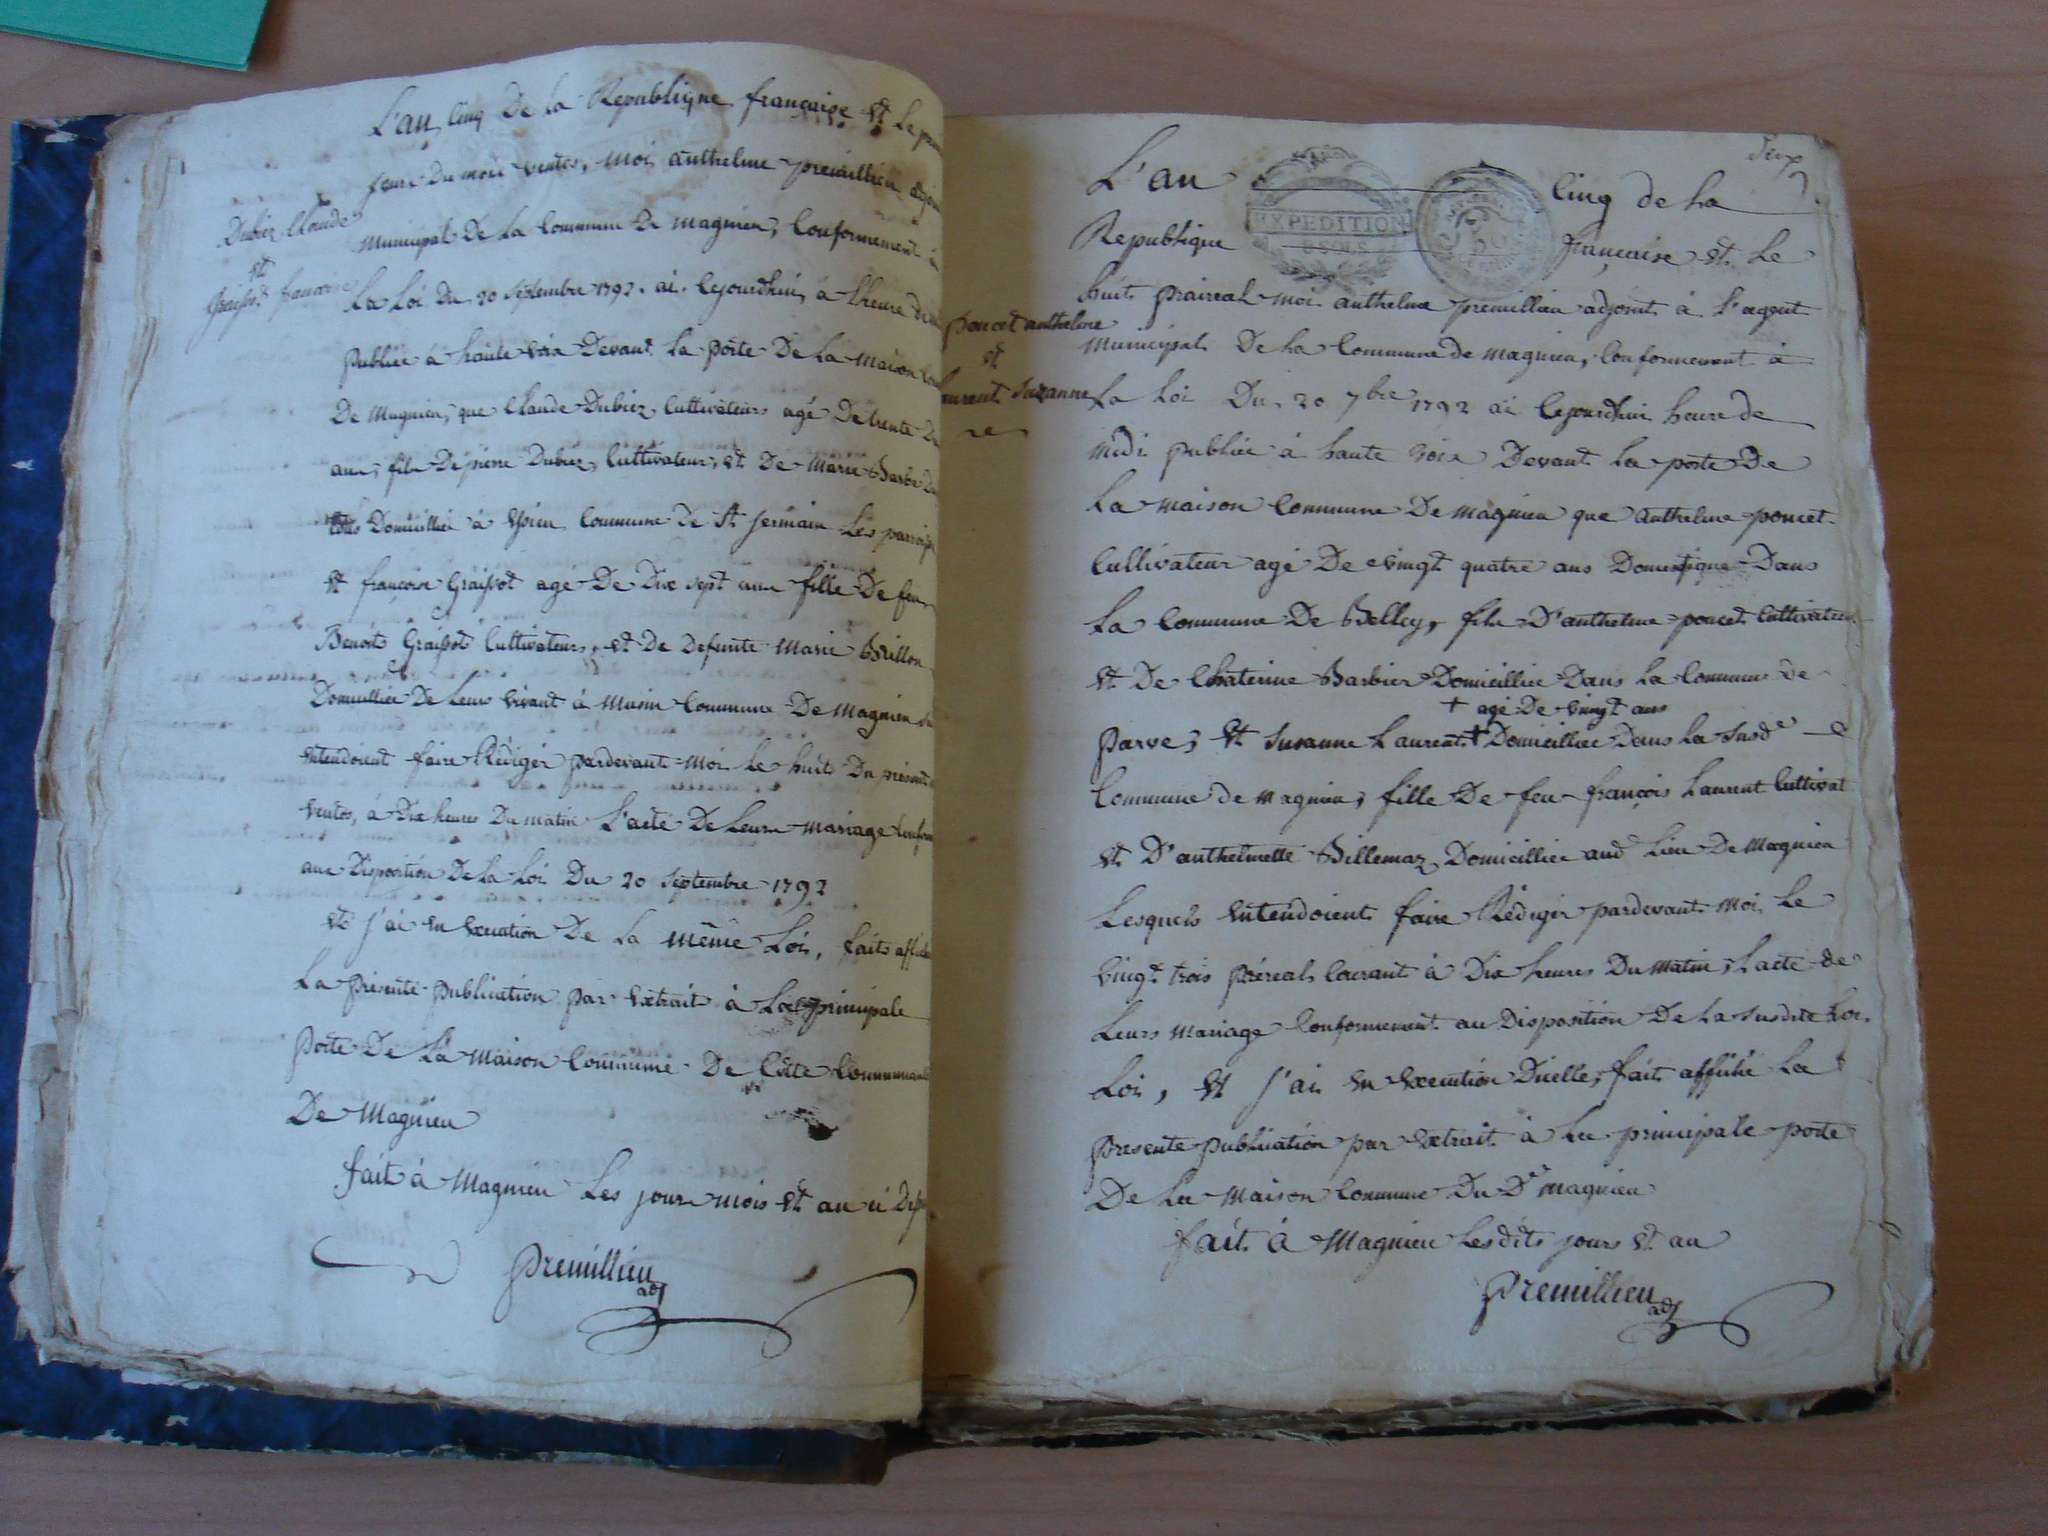 L'an cinq De la Republique française Et Le
jour Du mois ventos, moi anthelme premillieu
Dubiez Claude
Et
françoise
municipal De La Commune De magnieu, Conformement
La Loi Du 20 septembre 1792. ai Cejourdhui, à Lheure de
publiée à haute voix Devant La porte De La maison
De Magnieu, que Claude Dubiez, Cultivateur agé De trente
ans, fils De pierre Dubiez, Cultivateur, Et De Marie Barbe
Domicilliée à Commune de St. jermain Les
Et françoise Graissot agé De Dix sept ans fille De feu
Benoit Graissot Cultivateur, Et De Defunte Marie Brillon
Domicilliée De Leurs vivant à Musin Commune De Magnieu
intendoient faire Rédiger pardevant moi Le huit Du présent
ventos, à Dix heures Du matin L'acte De Leurs mariage
aux Disposition De La Loi Du 20 septembre 1792
Et j'ai En Execution De La même Loi, fait
La présente publication par Extrait à La principale
porte De La Maison Commune De Cette
De Magnieu
fait à Magnieu Les jour mois Et an
premillieu
adj
Deux
L'an Cinq de La
EXPEDITION
Republique française Et Le
huit praireal moi anthelme premillieu adjoint à L'agent
poncet anthelme
Et
Laurent Suzanne
Municipal De La Commune de Magnieu, Conformement à
La Loi Du 20 7bre 1792 ai Cejourdhui heure de
midi publiée à haute voix Devant La porte De
La maison Commune De magnieu que anthelme poncet
Cultivateur agé De vingt quatre ans Domestique Dans
La Commune De Belley, fils D'anthelme poncet Cultivateur
Et De Chaterine Barbier Domicilliée Dans La Commune de
† agé De vingt ans
parve, Et Suzanne Laurent † Domicilliée Dans La Susde
Commune de Magnieu, fille De feu françois Laurent Cultivat
Et D'anthelmette Billemaz Domicilliée aud Lieu De Magnieu
Lesquels intendoient faire Rédiger pardevant Moi Le
vingt trois préreal Courant à Dix heures Du Matin, Lacte de
Leurs mariage Conformement au Disposition De La susdite Loi
Loi, Et j'ai En Execution Dicelle, fait affiché La
presente publication par Extrait à La principale porte
De La Maison Commune Du Dt Magnieu
fait à Magnieu Lesdits jours Et an
premillieu
adj